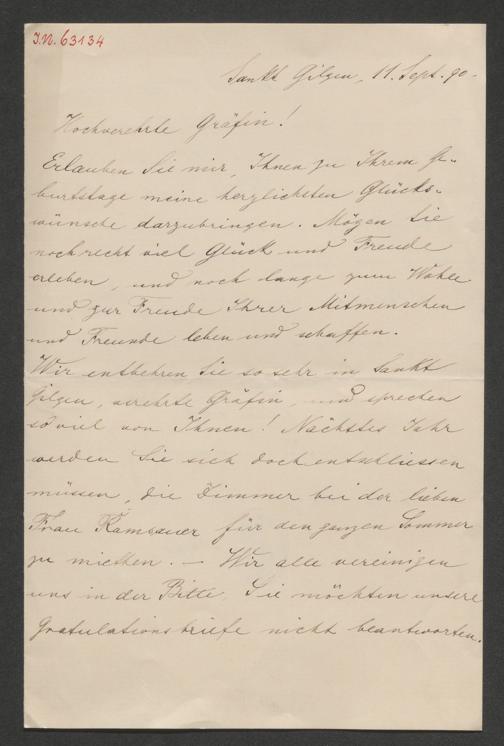 J.N. 63134
Sankt Gilgen, 11. Sept. 90.
Hochverehrte Gräfin!
Erlauben Sie mir, Ihnen zu Ihrem Ge-
burtstage meine herzlichsten Glücks-
wünsche darzubringen. Mögen Sie
noch recht viel Glück und Freude
erleben, und noch lange zum Wohle
und zur Freude Ihrer Mitmenschen
und Freunde leben und schaffen.
Wir entbehren Sie so sehr in Sankt
Gilgen, verehrte Gräfin, und sprechen
so viel von Ihnen! Nächstes Jahr
werden Sie sich doch entschliessen
müssen, die Zimmer bei der lieben
Frau Ramsauer für den ganzen Sommer
zu miethen. – Wir alle vereinigen
uns in der Bitte, Sie möchten unsere
Gratulationsbriefe nicht beantworten.